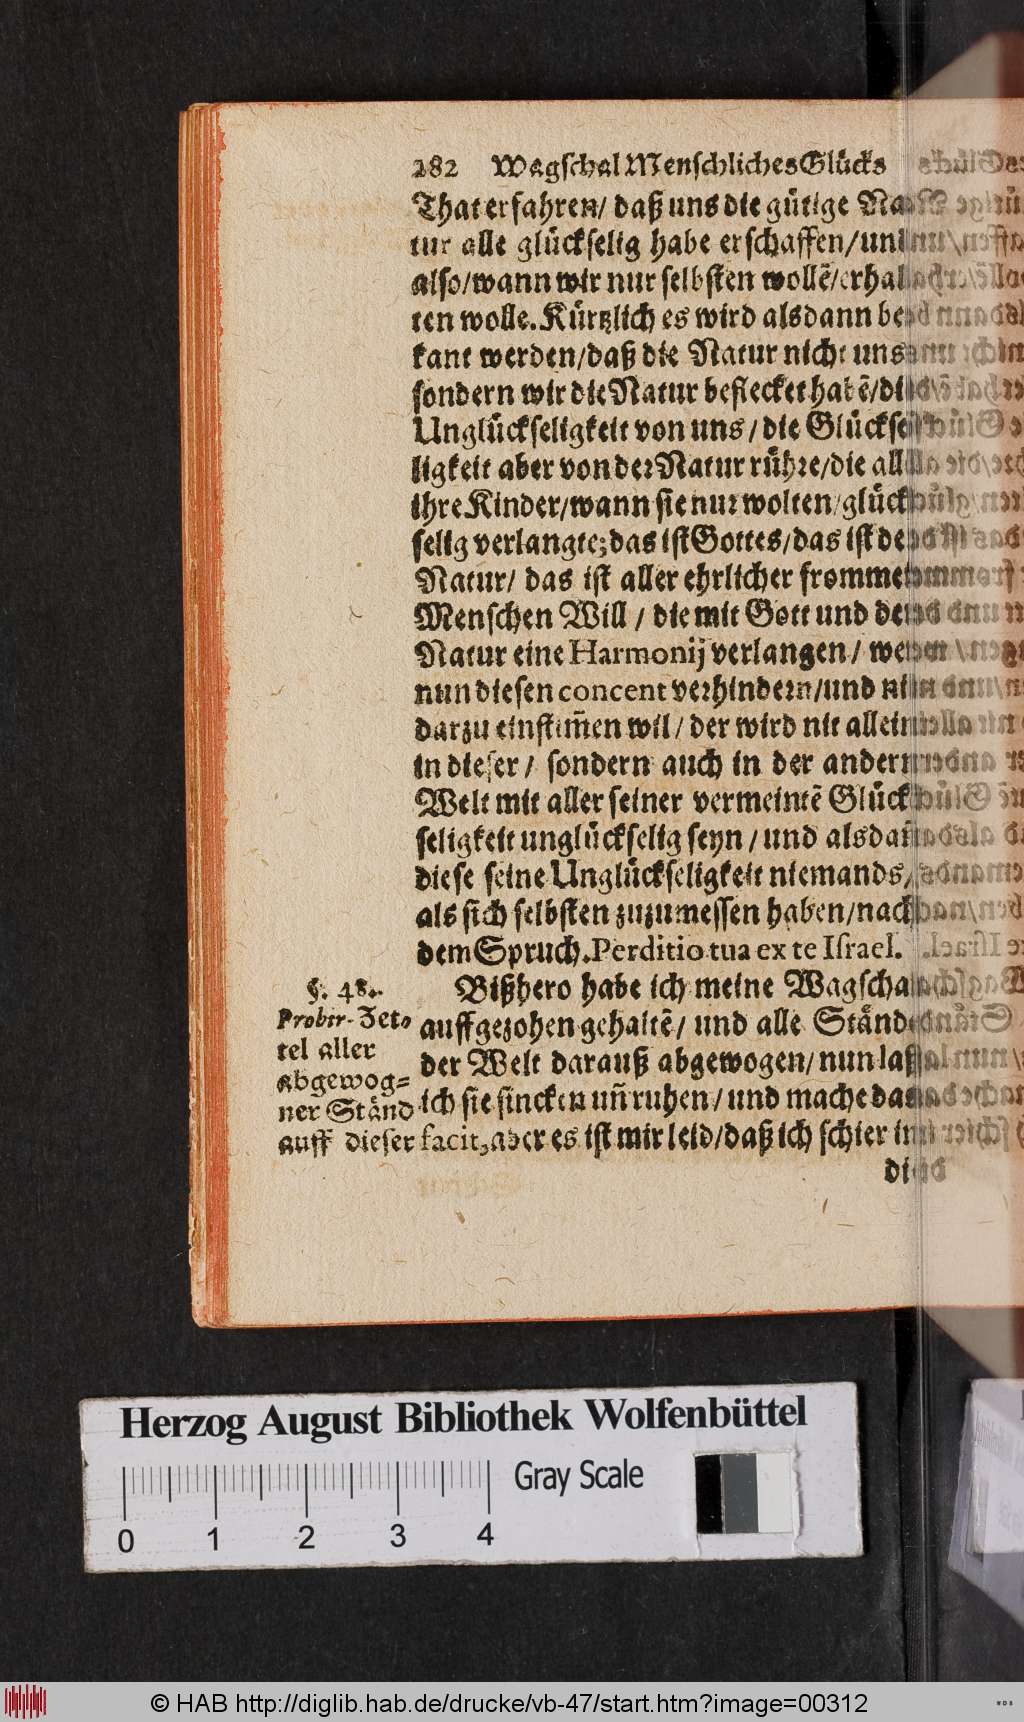 282 Wagschal Menschliches Glücks
That erfahren/ daß uns die gütige Na-
tur alle glückselig habe erschaffen/und
also/wann wir nur selbsten wollẽ/erhal-
ten wolle. Kürtzlich es wird alsdann be-
kant werden/daß die Natur nicht uns
sondern wir die Natur beflecket habẽ/die
Unglückseligkeit von uns/die Glückse-
ligkeit aber von der Natur rühre/die all
ihre Kinder/wann sie nur wolten/glück-
selig verlangte; das ist Gottes/das ist der
Natur/ das ist aller ehrlicher frommer
Menschen Will / die mit Gott und der
Natur eine Harmonij verlangen/ wer
nun diesen concent verhindern/und nit
darzu einstim̃en wil/ der wird nit allein
in dieser / sondern auch in der andern
Welt mit aller seiner vermeintẽ Glück-
seligkeit unglückselig seyn / und alsdañ
diese seine Unglückseligkeit niemands/
als sich selbsten zuzumessen haben/nach
dem Spruch. Perditio tua ex te Israel.
§. 48.
Probir-Zet-
tel aller
abgewog-
ner Ständ
auff dieser
Bißhero habe ich meine Wagschal
auffgezohen gehaltẽ/ und alle Stände
der Welt darauß abgewogen/ nun lass
ich sie sincken uñ ruhen/ und mache das
facit, aber es ist mir leid/daß ich schier in
die
Herzog August Bibliothek Wolfenbüttel
Gray Scale
0 1 2 3 4
© HAB http://diglib.hab.de/drucke/vb-47/start.htm?image=00312